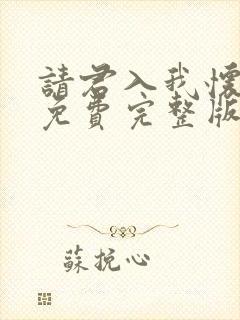 請君入我懷
免費完整版
蘇挽心